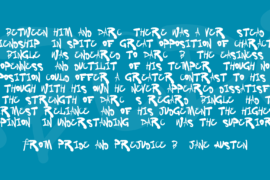 BETWEEN HIM AND DARC THERE WAS A VER STEAD
IENDSHIP IN SPITE OF GREAT OPPOSITION OF CHARACTER
BINGLE WAS ENDEARED TO DARC B THE EASINESS
OPENNESS AND DUCTILIT OF HIS TEMPER THOUGH NO
POSITION COULD OFFER A GREATER CONTRAST TO HIS
THOUGH WITH HIS OWN HE NEVER APPEARED DISSATISF
THE STRENGTH OF DARC S REGARD BINGLE HAD T
RMEST RELIANCE AND OF HIS JUDGEMENT THE HIGHES
PINION IN UNDERSTANDING DARC WAS THE SUPERIOR
FROM PRIDE AND PREJUDICE B JANE AUSTEN